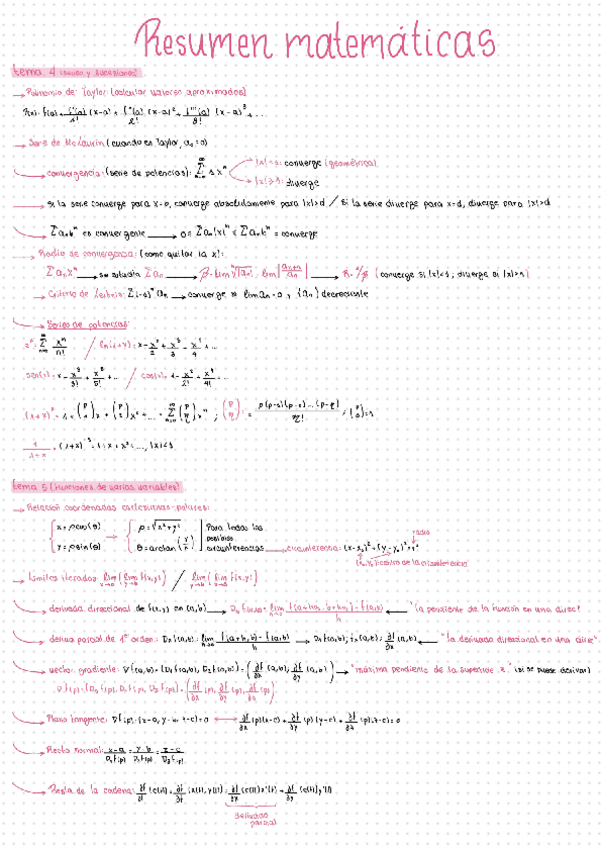 Resumen matemáticas
tema 4 (series y sucesiones)
→ Polinomio de Taylor (calcular valores aproximados)
P(x): f(a) + f'(a)/1! (x-a) + f''(a)/2! (x-a)² + f'''(a)/3! (x-a)³ + ...
→ Serie de McLaurin (cuando en Taylor, a₀=0)
→ convergencia: (serie de potencias): ∑ 1 xⁿ
|x|<1: converge (geométrica)
|x|≥1: diverge
→ si la serie converge para x=0, converge absolutamente para |x|>d / si la serie diverge para x=d, diverge para |x|>d
→ ∑anbⁿ es convergente → 0≤ ∑an|x|ⁿ ≤ ∑anbⁿ = converge
→ Radio de convergencia: (como quitar la x):
∑anxⁿ → se estudia ∑an → β=lim ⁿ√|an|; lim |an+1/an| → R=1/β (converge si |x|<1; diverge si |x|>1)
→ Criterio de Leibniz: ∑(-1)ⁿ an → converge si lim an=0 y {an} decreciente
→ Series de potencias:
eˣ: ∑ xⁿ/n! / ln(1+x) = x - x²/2 + x³/3 - x⁴/4 + ...
sen(x) = x - x³/3! + x⁵/5! + ... / cos(x) = 1 - x²/2! + x⁴/4! ...
tema 5 (funciones de varias variables)
→ Relación coordenadas cartesianas-polares:
x = ρcos(θ)
y = ρsin(θ)
ρ = √x²+y²
θ = arctan(y/x)
Para todos los
posibles
circunferencias
→ circunferencia: (x-x₀)²+(y-y₀)²=r²
radio
(x₀,y₀): centro de la circunferencia
→ límites iterados: lim (lim f(x,y)) / lim (lim f(x,y))
→ derivada direccional de f(x,y) en (a,b)
"la pendiente de la función en una direc"
→ deriva parcial de 1er orden:
"la derivada direccional en una direc"
→ vector gradiente: ∇f(a,b) = (D₁f(a,b), D₂f(a,b)) = (∂f/∂x (a,b); ∂f/∂y (a,b)) → "máxima pendiente de la superficie z" (si se puede derivar)
→ Plano tangente: ∇f(p)·(x-a, y-b, z-c)=0 ↔ ∂f/∂x (p)(x-a) + ∂f/∂y (p)(y-b) + ∂f/∂z (p)(z-c)=0
→ Recta normal: x-a/D₁f(p) = y-b/D₂f(p) = z-c/D₃f(p)
→ Regla de la cadena:
derivada
parcial